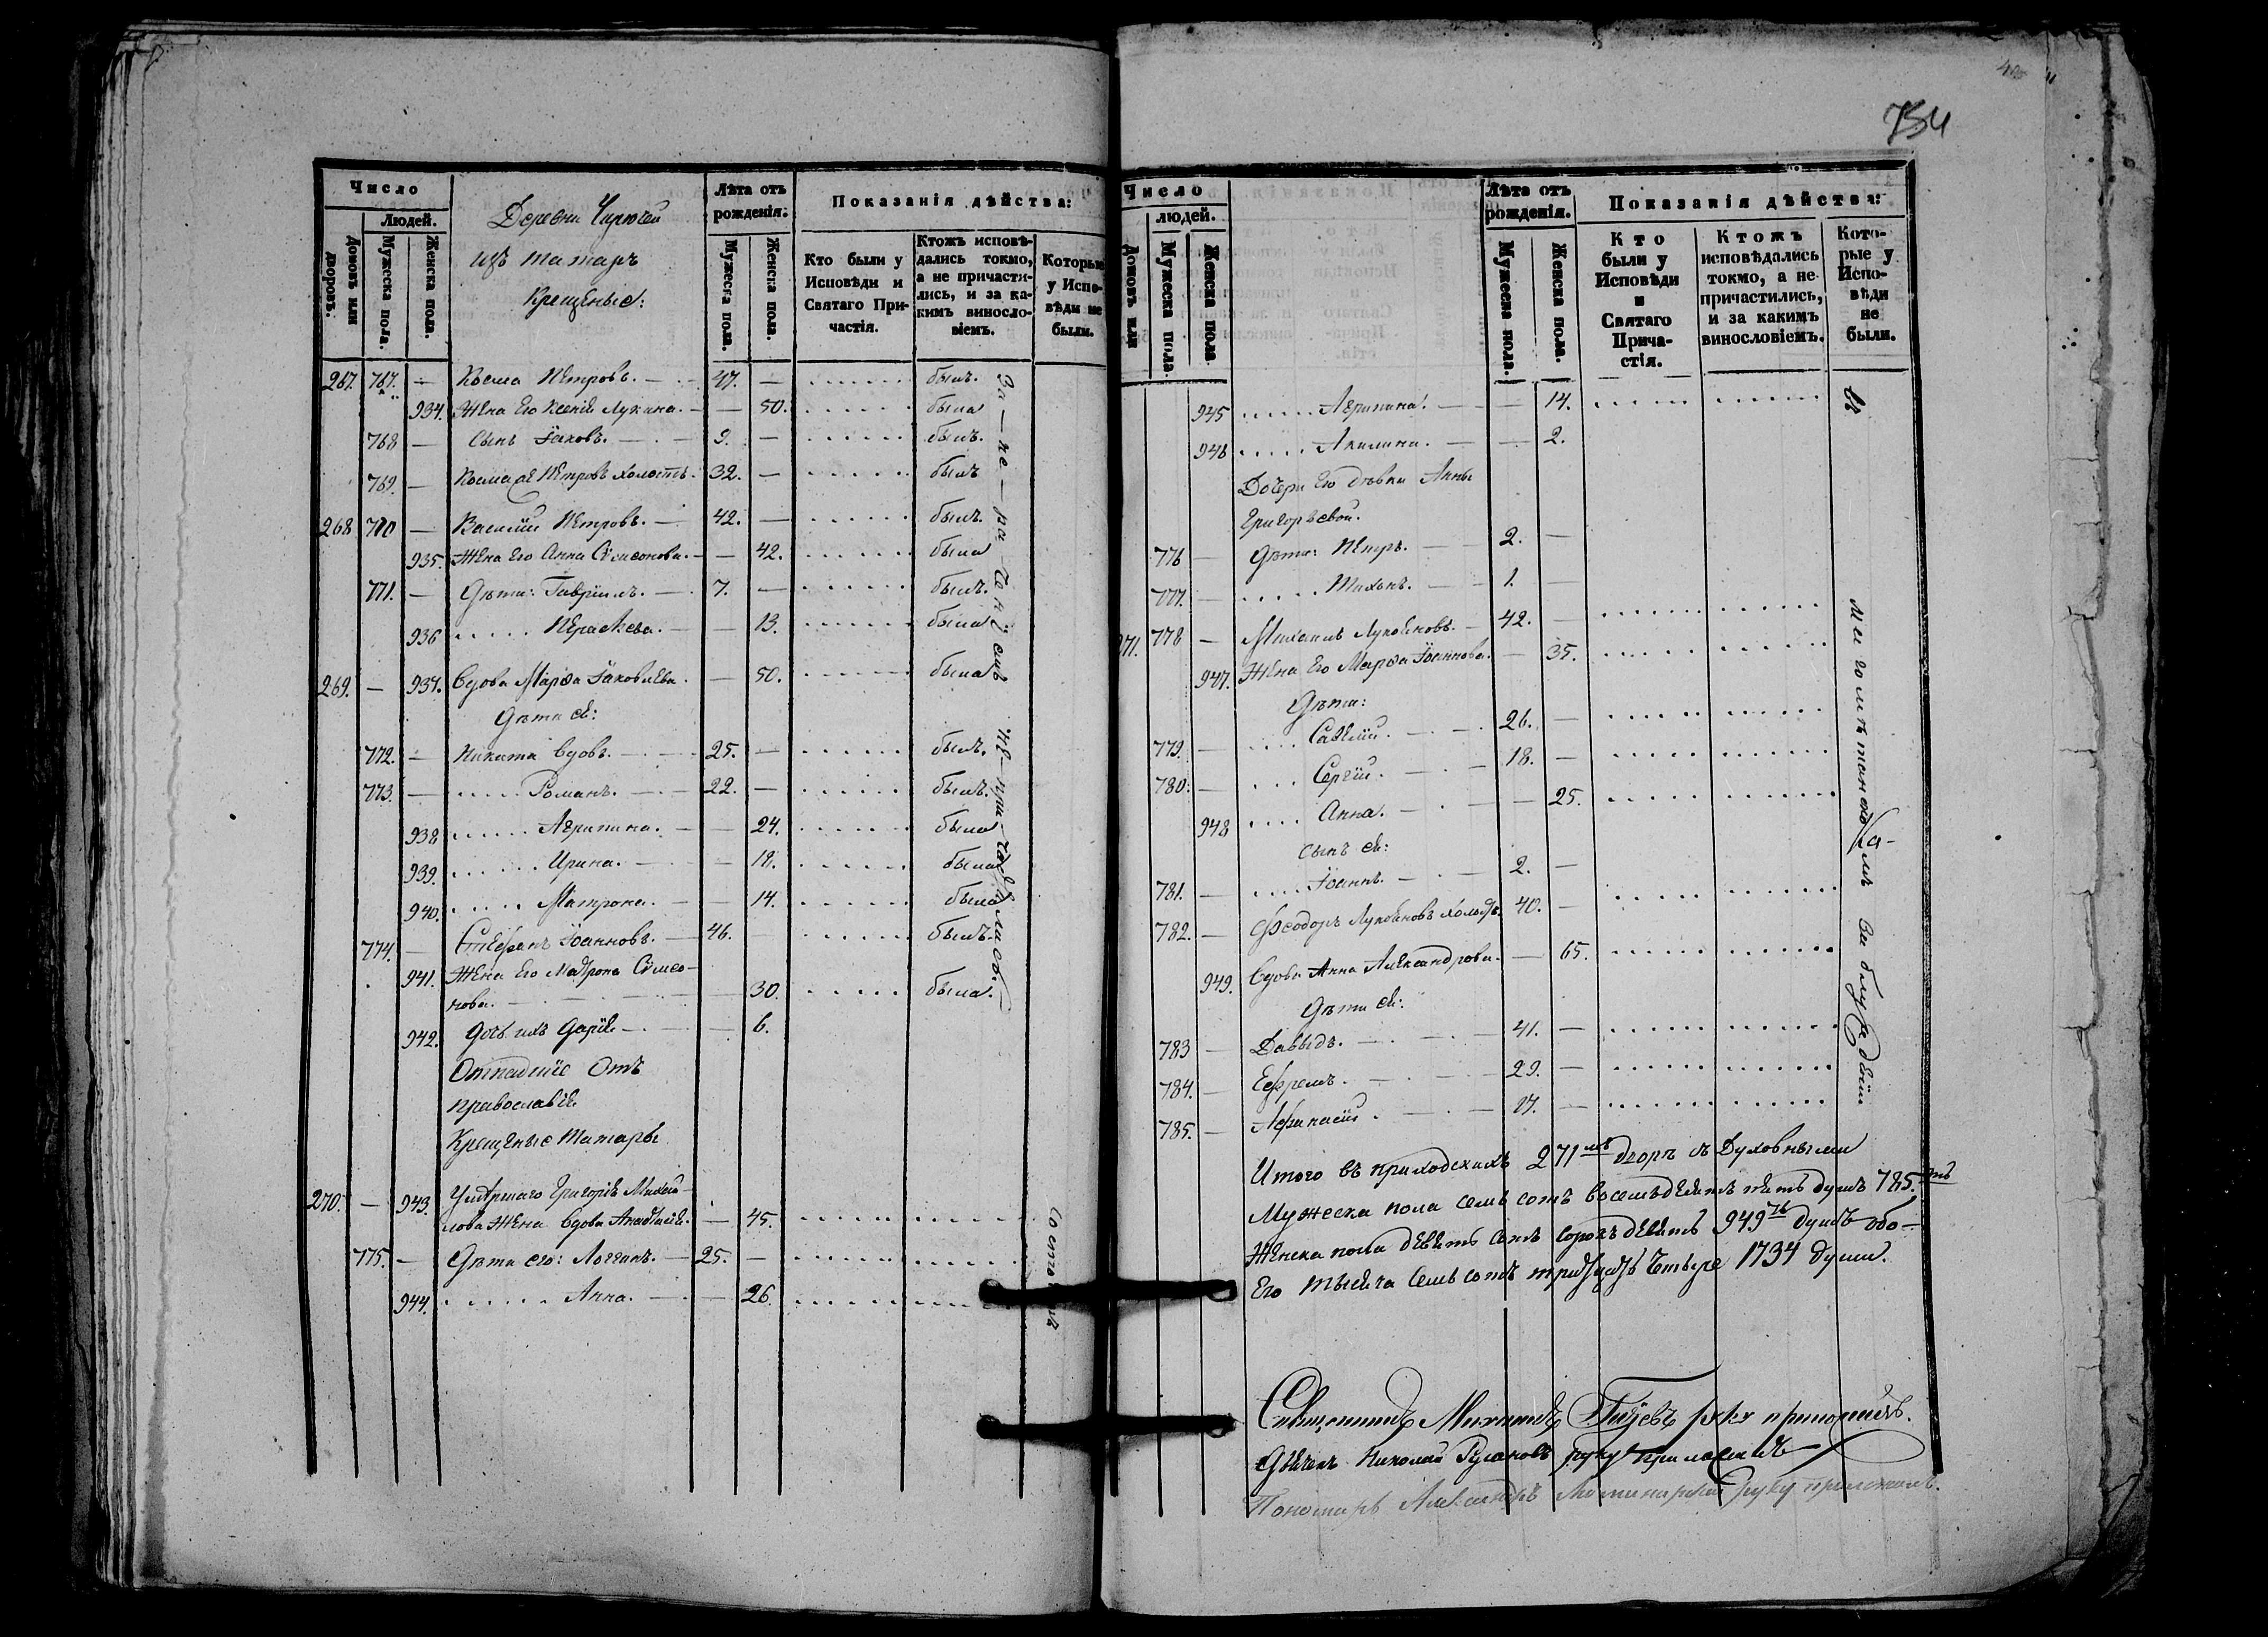 754
Число
Людей.
Домовъ или дворовъ.
Мужеска пола.
Женска пола.
Деревни
изъ татаръ
Крещеные:
Лѣта отъ рожденія:
Мужеска пола.
Женска пола.
Показанія дѣйства:
Кто были у Исповѣди и Святаго Причастія.
Ктожъ исповѣдались токмо, а не причастились, и за какимъ винословіемъ.
Которые у Исповѣди не были.
267. 767. — Косма Петровъ. — 47. — был.
934. Жена его Ксенія Лукина. — 50. была
768 — сынъ Іаковъ. — 9. — былъ.
769. — Косма же Петровъ холостъ. 32. — былъ
268 770 — Василій Петровъ. — 42. — былъ.
935. Жена его Анна Сѵмеонова. — 42. была
771. — Дѣти: Гавріилъ. — 7. — былъ.
936 Параскева. — 13. была
269. — 937. Вдова Марѳа Іаковлева. — 50. была
Дѣти ея:
772. — Никита вдовъ. — 25. — былъ.
773. — Романъ. — 22. — былъ.
938 Агрипина. — 24. была
939. Ирина. — 18. была
940. Матрона. — 14. была
774. — Стефанъ Іоанновъ. — 46. былъ.
941. Жена его Матрона Сѵмео-
нова. — 30. была.
942. Дочь ихъ Дарія — 6.
За — не — ра — ченіемъ не причастились.
Отпадшіе отъ
православія
Крещеные татары
270. — 943. Умершаго Григорія Михай-
лова жена вдова Анастасія. — 45.
775. — Дѣти его: Логгинъ. — 25. —
944. Анна. — 26.
Число
людей.
Домовъ или
Мужеска пола.
Женска пола.
Лѣта отъ рожденія.
Мужеска пола.
Женска пола.
Показанія дѣйства:
Кто были у Исповѣди и Святаго Причастія.
Ктожъ исповѣдались токмо, а не причастились, и за какимъ винословіемъ.
Которые у Исповѣди не были.
945 Агрипина. — 14.
946 Акилина. — 2.
Дочери его дѣвки Анны
Григорьевой.
776 — Дѣти: Петръ. — 2. —
777. — Тихонъ. — 1. —
271. 778 — Михаилъ Лукояновъ. — 42. —
947. Жена его Марѳа Іоаннова. — 35.
Дѣти:
779. — Савелій. — 26. —
780. — Сергій. — 18. —
948 Анна. — 25.
сынъ ея:
781. — Іоаннъ. — 2. —
782. — Ѳеодоръ Лукояновъ холостъ. 40. —
949. Вдова Анна Александрова. — 65.
Дѣти ея:
783 — Давыдъ. — 41. —
784. — Ефремъ. — 29. —
785. — Афанасій. — 17. —
въ магометанскомъ заблужденіи
Итого въ приходскихъ 271мъ дворѣ съ Духовными
Мужеска пола семь сотъ восемьдесятъ пять душъ 785.
Женска пола девять сотъ сорокъ девять 949ть душъ обо-
его тысяча семь сотъ тридцать четыре 1734 души.
Священникъ Михаилъ руку приложилъ.
Дьячекъ Николай Русановъ руку приложилъ
Пономарь Александръ руку приложилъ.